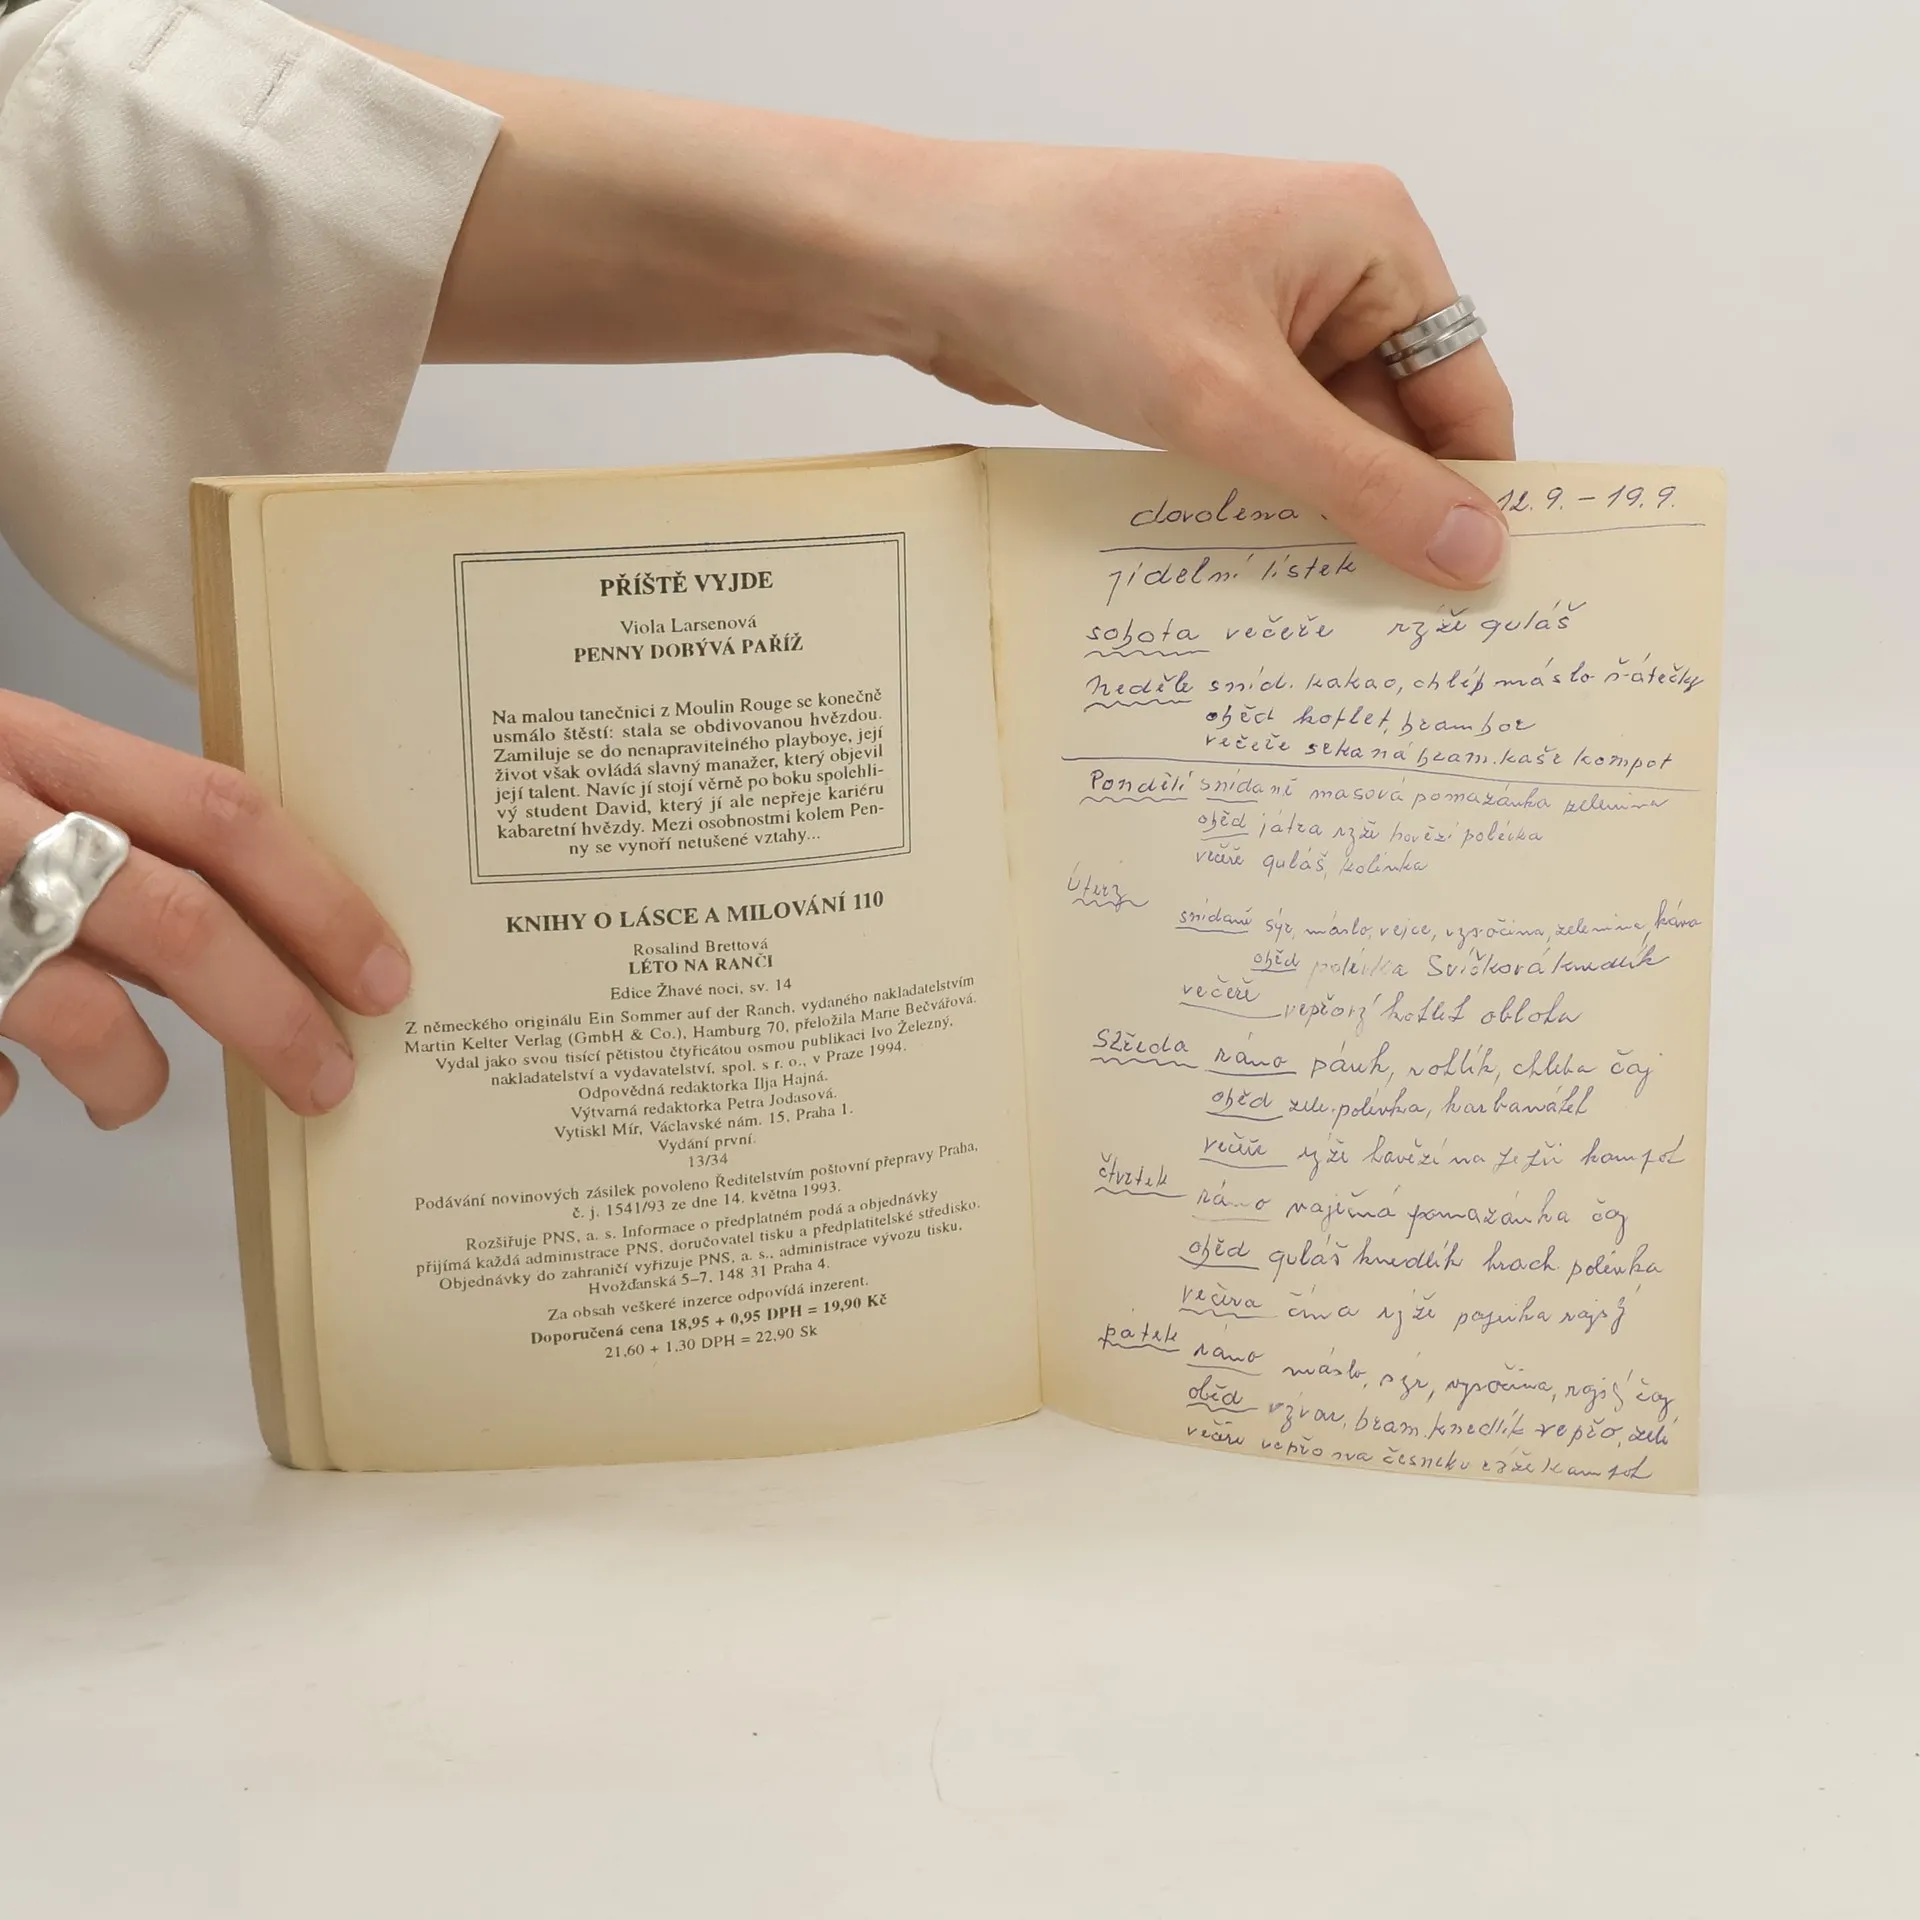 PŘÍŠTĚ VYJDE
Viola Larsenová
PENNY DOBÝVÁ PAŘÍŽ
Na malou tanečnici z Moulin Rouge se konečně
usmálo štěstí: stala se obdivovanou hvězdou.
Zamiluje se do nenapravitelného playboye, její
život však ovládá slavný manažer, který objevil
její talent. Navíc jí stojí věrně po boku spolehli-
vý student David, který jí ale nepřeje kariéru
kabaretní hvězdy. Mezi osobnostmi kolem Pen-
ny se vynoří netušené vztahy...
KNIHY O LÁSCE A MILOVÁNÍ 110
Rosalind Brettová
LÉTO NA RANČI
Edice Žhavé noci, sv. 14
Z německého originálu Ein Sommer auf der Ranch, vydaného nakladatelstvím
Martin Kelter Verlag (GmbH & Co.), Hamburg 70, přeložila Marie Bečvářová.
Vydal jako svou tisící pětistou čtyřicátou osmou publikaci Ivo Železný,
nakladatelství a vydavatelství, spol. s r. o., v Praze 1994.
Odpovědná redaktorka Ilja Hajná.
Výtvarná redaktorka Petra Jodasová.
Vytiskl Mír, Václavské nám. 15, Praha 1.
Vydání první.
13/34
Podávání novinových zásilek povoleno Ředitelstvím poštovní přepravy Praha,
č. j. 1541/93 ze dne 14. května 1993.
Rozšiřuje PNS, a. s. Informace o předplatném podá a objednávky
přijímá každá administrace PNS, doručovatel tisku a předplatitelské středisko.
Objednávky do zahraničí vyřizuje PNS, a. s., administrace vývozu tisku,
Hvožďanská 5–7, 148 31 Praha 4.
Za obsah veškeré inzerce odpovídá inzerent.
Doporučená cena 18,95 + 0,95 DPH = 19,90 Kč
21,60 + 1,30 DPH = 22,90 Sk
dovolena 12. 9. – 19. 9.
jídelní lístek
sobota večeře rýže guláš
Neděle sníd. kakao, chléb máslo šátečky
oběd kotlet, brambor
večeře sekaná bram. kaše kompot
Pondělí snídaně masová pomazánka zelenina
oběd játra rýže hovězí polévka
večeře guláš, kolínka
Úterý
snídaně sýr, máslo, vejce, vysočina, zelenina, káva
oběd polévka Svíčková knedlík
večeře vepřový kotlet obloha
Středa ráno párek, rohlík, chleba čaj
oběd zele. polévka, karbanátek
večeře rýže hovězí na kompot
čtvrtek ráno vaječná pomazánka čaj
oběd guláš knedlík hrach. polévka
večeře čína rýže rajský
pátek ráno máslo, sýr, vysočina, rajský čaj
oběd vývar, bram. knedlík vepřo, zelí
večeře vepřo na česneku rýže kompot